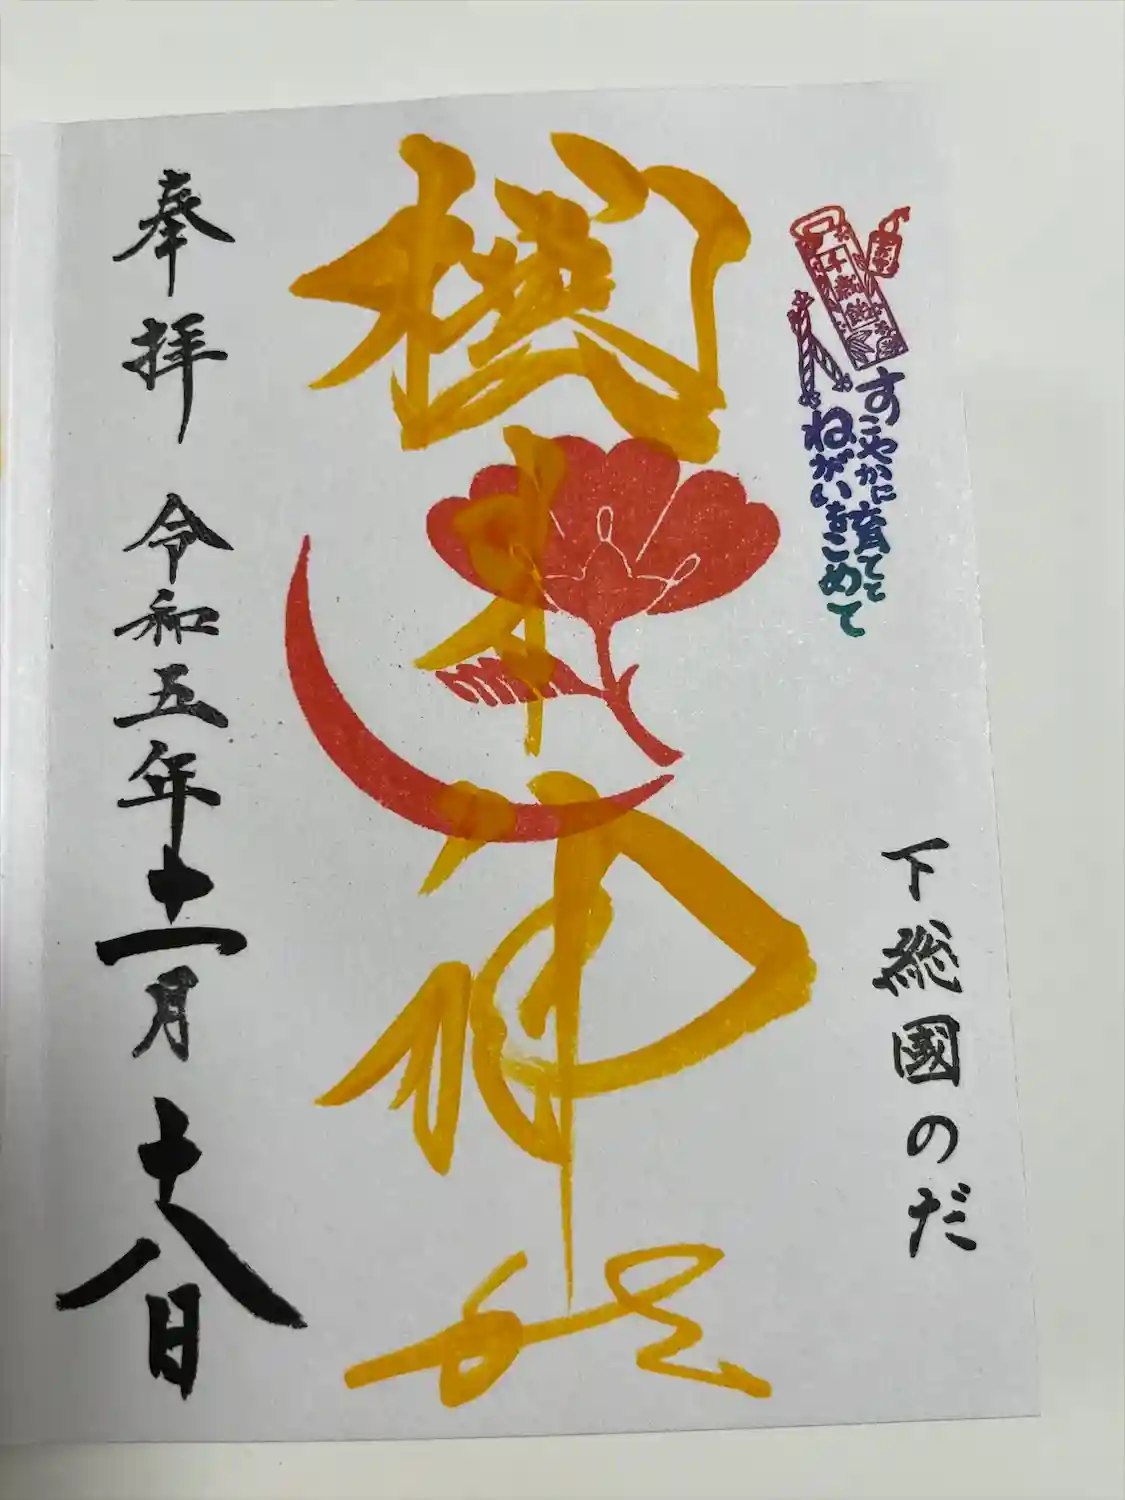 千歳飴
すこやかに育てと
ねがいをこめて
下総國のだ
櫻木神社
奉拝 令和五年十一月十八日